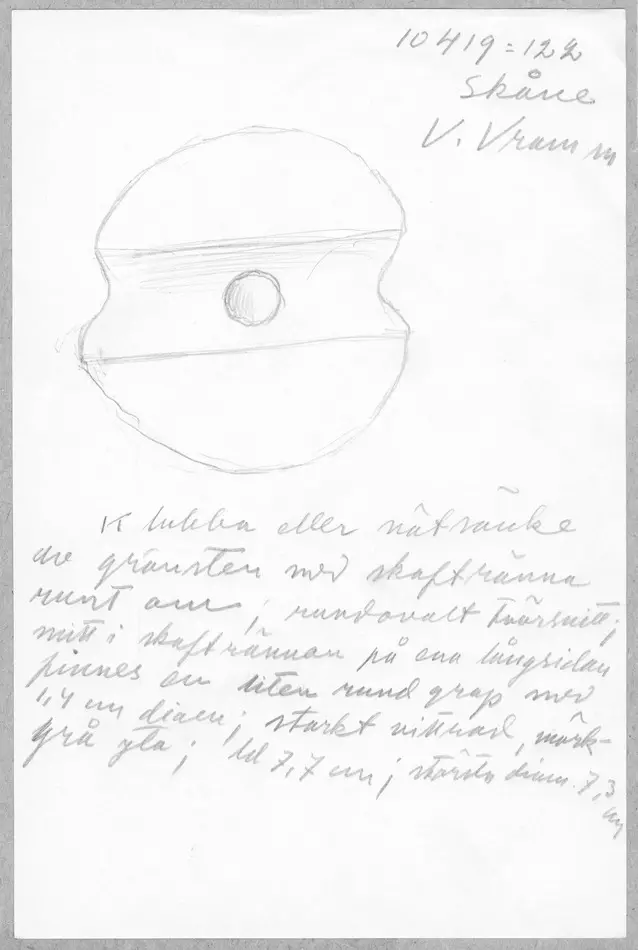 10419:122
Skåne
V. Vram sn
Klubba eller nätsänke
av gråsten med skaftränna
runt om; rundovalt tvärsnitt;
mitt i skaftrännan på ena långsidan
finnes en liten rund grop med
1,4 cm diam; starkt vittrad, mörk-
grå yta; ld 7,7 cm; största diam. 7,3
cm